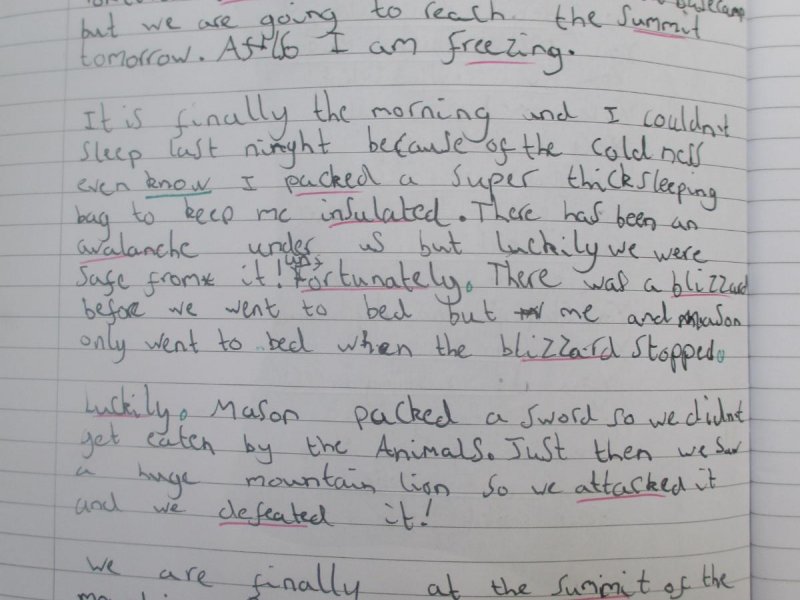 basecamp
but we are going to reach the summit
tomorrow. I am freezing.
It is finally the morning and I couldn't
sleep last ninght because of the coldness
even know I packed a super thick sleeping
bag to keep me insulated. There has been an
avalanche under us but luckily we were
safe from it! Unfortunately, There was a blizzard
before we went to bed but me and mason
only went to bed when the blizzard stopped.
Luckily, Mason packed a sword so we didnt
get eaten by the Animals. Just then we saw
a huge mountain lion so we attacked it
and we defeated it!
we are finally at the summit of the